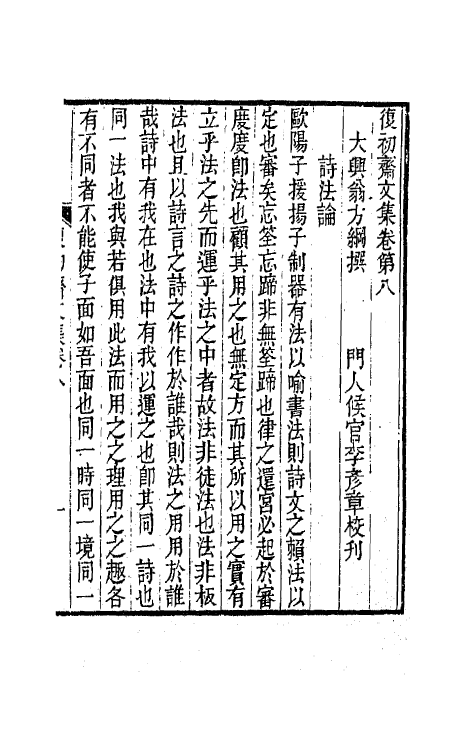 復初齋文集卷第八
大興翁方綱撰　門人侯官李彥章校刊
詩法論
歐陽子援揚子制器有法以喻書法則詩文之賴法以
定也審矣忘筌忘蹄非無筌蹄也律之還宮必起於審
度度卽法也顧其用之也無定方而其所以用之實有
立乎法之先而運乎法之中者故法非徒法也法非板
法也且以詩言之詩之作作於誰哉則法之用用於誰
哉詩中有我在也法中有我以運之也卽其同一詩也
同一法也我與若俱用此法而用之之理用之之趣各
有不同者不能使子面如吾面也同一時同一境同一